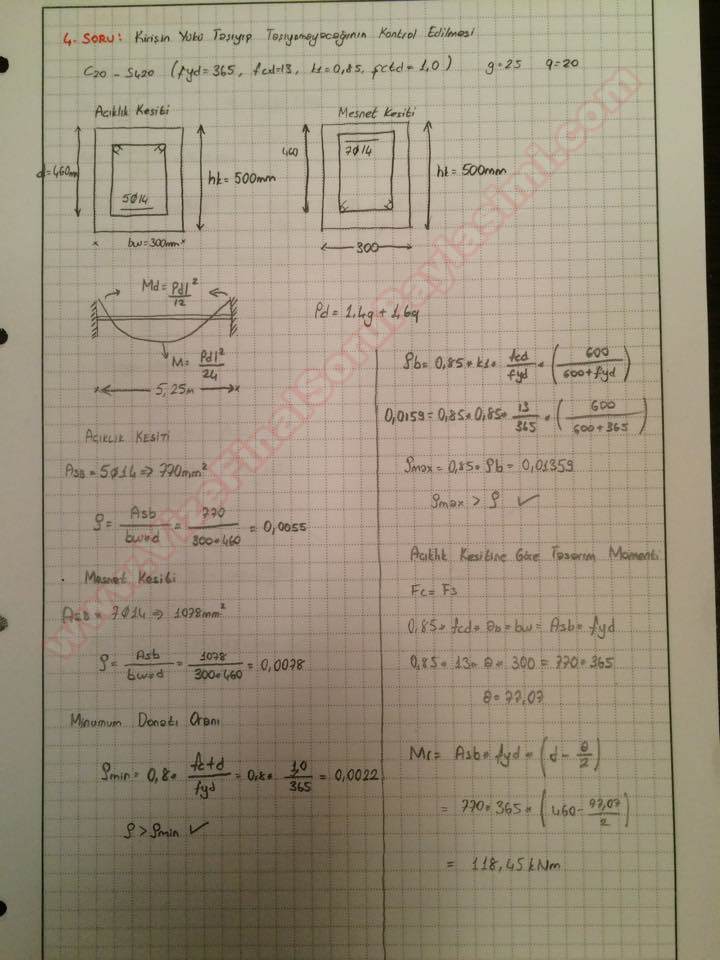 4. SORU: Kirişin Yükü Taşıyıp Taşıyamayacağının Kontrol Edilmesi
C20 - S420 (fyd = 365, fcd=13, k1=0,85, fctd = 1,0) g=25 q=20
Açıklık Kesiti
d=460mm
5Ø14
hk = 500mm
bw=300mm
Mesnet Kesiti
460
7Ø14
hk = 500mm
300
Md = Pdl²/12
M = Pdl²/24
5,25m
Pd = 1,4g + 1,6q
AÇIKLIK KESİTİ
Asb = 5Ø14 => 770mm²
ρ = Asb/bw*d = 770/300*460 = 0,0055
Mesnet Kesiti
Asb = 7Ø14 => 1078mm²
ρ = Asb/bw*d = 1078/300*460 = 0,0078
Minumum Donatı Oranı
ρmin = 0,8* fctd/fyd = 0,8* 1,0/365 = 0,0022
ρ > ρmin ✓
ρb = 0,85*k1* fcd/fyd * (600/600+fyd)
0,0159 = 0,85*0,85* 13/365 * (600/600+365)
ρmax = 0,85* ρb = 0,01359
ρmax > ρ ✓
Açıklık Kesitine Göre Tasarım Momenti
Fc = Fs
0,85* fcd* ab* bw = Asb* fyd
0,85* 13* a* 300 = 770*365
a = 77,07
Mr = Asb* fyd* (d - a/2)
= 770*365* (460 - 77,07/2)
= 118,45 kNm
www.VizeFinalSoruPaylasimi.com